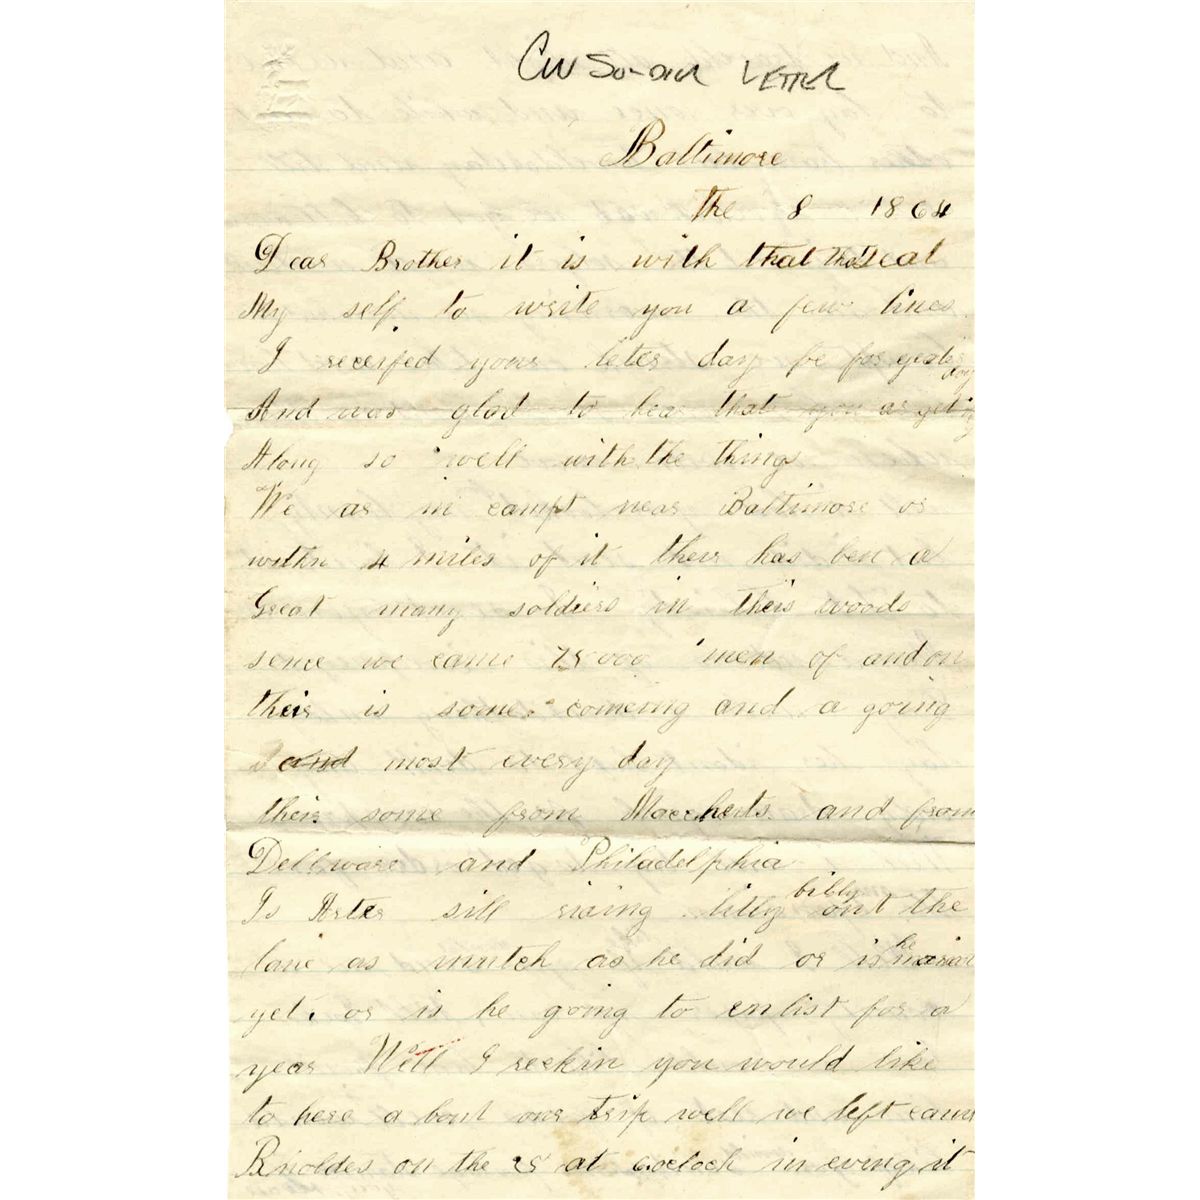 CW Soldier LETTER
Baltimore
the 8 1864
Dear Brother it is with that that I seat
My self to write you a few lines
I receifed your leter day be for yester
day
And was glad to hear that you ar geting
Along so well with the things
We ar in campt near Baltimore or
withn 4 miles of it their has ben a
Great many soldiers in theis woods
sence we came 25000 men of and on
their is some comeing and a going
and most every day
their some from and from
Dellware and Philadelphia
Is Arter sill riding billy
out the
lane as mutch as he did or is he
yet or is he going to enlist for a
year Well I reckin you would like
to here a bout our trip well we left
on the 25 at 6 oclock in evning it